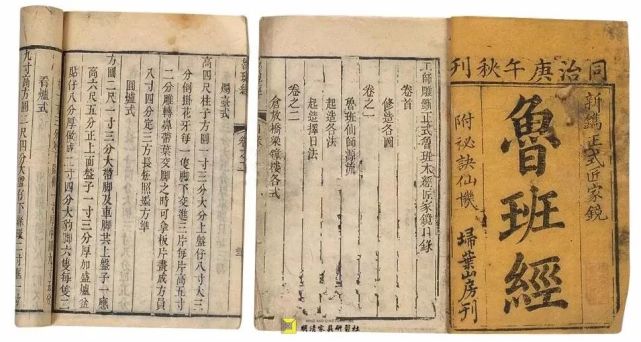 同治庚午秋刊
新鐫正式匠家鏡
魯班經
附祕訣仙機
掃葉山房刊
工師雕斲正式魯班木經匠家鏡目錄
卷首
修造各圖
魯班仙師源流
卷之一
起造各法
起造擇日法
卷之二
倉敖橋梁鐘樓各式
燭臺式
高四尺柱子方圓一寸三分大分上盤仔八寸大三
分倒掛花牙每一隻腳下交進三片每片高五寸
二分雕轉鼻帶葉交腳之時可拿板片畫成方員
八寸四分定三方長短照墨方準
圓爐式
方圓二尺一寸三分大帶腳及車腳共上盤子一應
高六尺五分正上面盤子一寸三分厚加盛爐盆
貼仔八分厚做成二寸四分大豹腳六隻每隻二
看爐式
九寸高方圓二尺四分大盤仔下絛環二寸框一寸
明清家具研習社